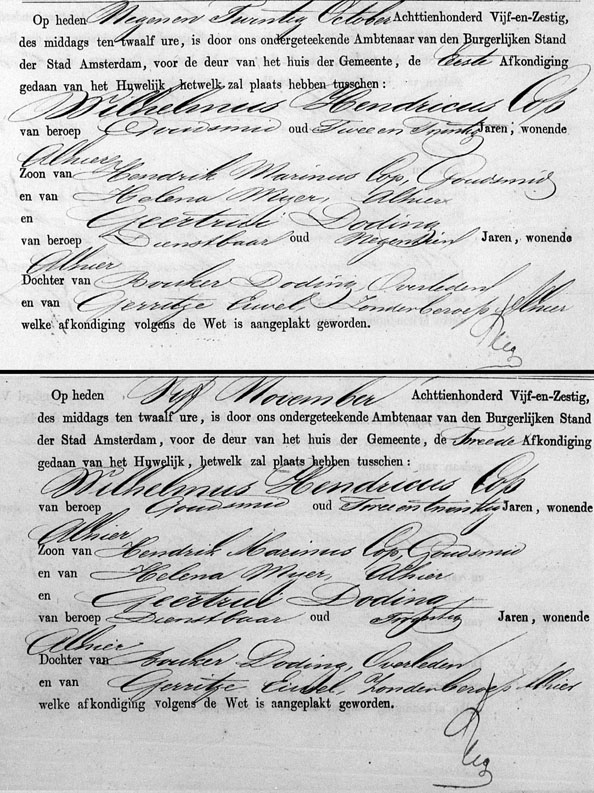 Op heden Negenen Twintig October Achttienhonderd Vijf-en-Zestig,
des middags ten twaalf ure, is door ons ondergeteekende Ambtenaar van den Burgerlijken Stand
der Stad Amsterdam, voor de deur van het huis der Gemeente, de Eerste Afkondiging
gedaan van het Huwelijk, hetwelk zal plaats hebben tusschen:
Wilhelmus Hendricus Cop
van beroep Goudsmid oud Twee en Twintig Jaren, wonende
Alhier
Zoon van Hendrik Marinus Cop, Goudsmid
en van Helena Meyer, Alhier
en Geertrui Doding
van beroep Dienstbaar oud Negentien Jaren, wonende
Alhier
Dochter van Bouker Doding, Overleden
en van Gerritje Euwel Zonder beroep Alhier
welke afkondiging volgens de Wet is aangeplakt geworden.
Op heden Vijf November Achttienhonderd Vijf-en-Zestig,
des middags ten twaalf ure, is door ons ondergeteekende Ambtenaar van den Burgerlijken Stand
der Stad Amsterdam, voor de deur van het huis der Gemeente, de Tweede Afkondiging
gedaan van het Huwelijk, hetwelk zal plaats hebben tusschen:
Wilhelmus Hendricus Cop
van beroep Goudsmid oud Twee en twintig Jaren, wonende
Alhier
Zoon van Hendrik Marinus Cop, Goudsmid
en van Helena Meyer, Alhier
en Geertrui Doding
van beroep Dienstbaar oud Jaren, wonende
Alhier
Dochter van Bouker Doding, Overleden
en van Gerritje Euwel, Zonder beroep Alhier
welke afkondiging volgens de Wet is aangeplakt geworden.